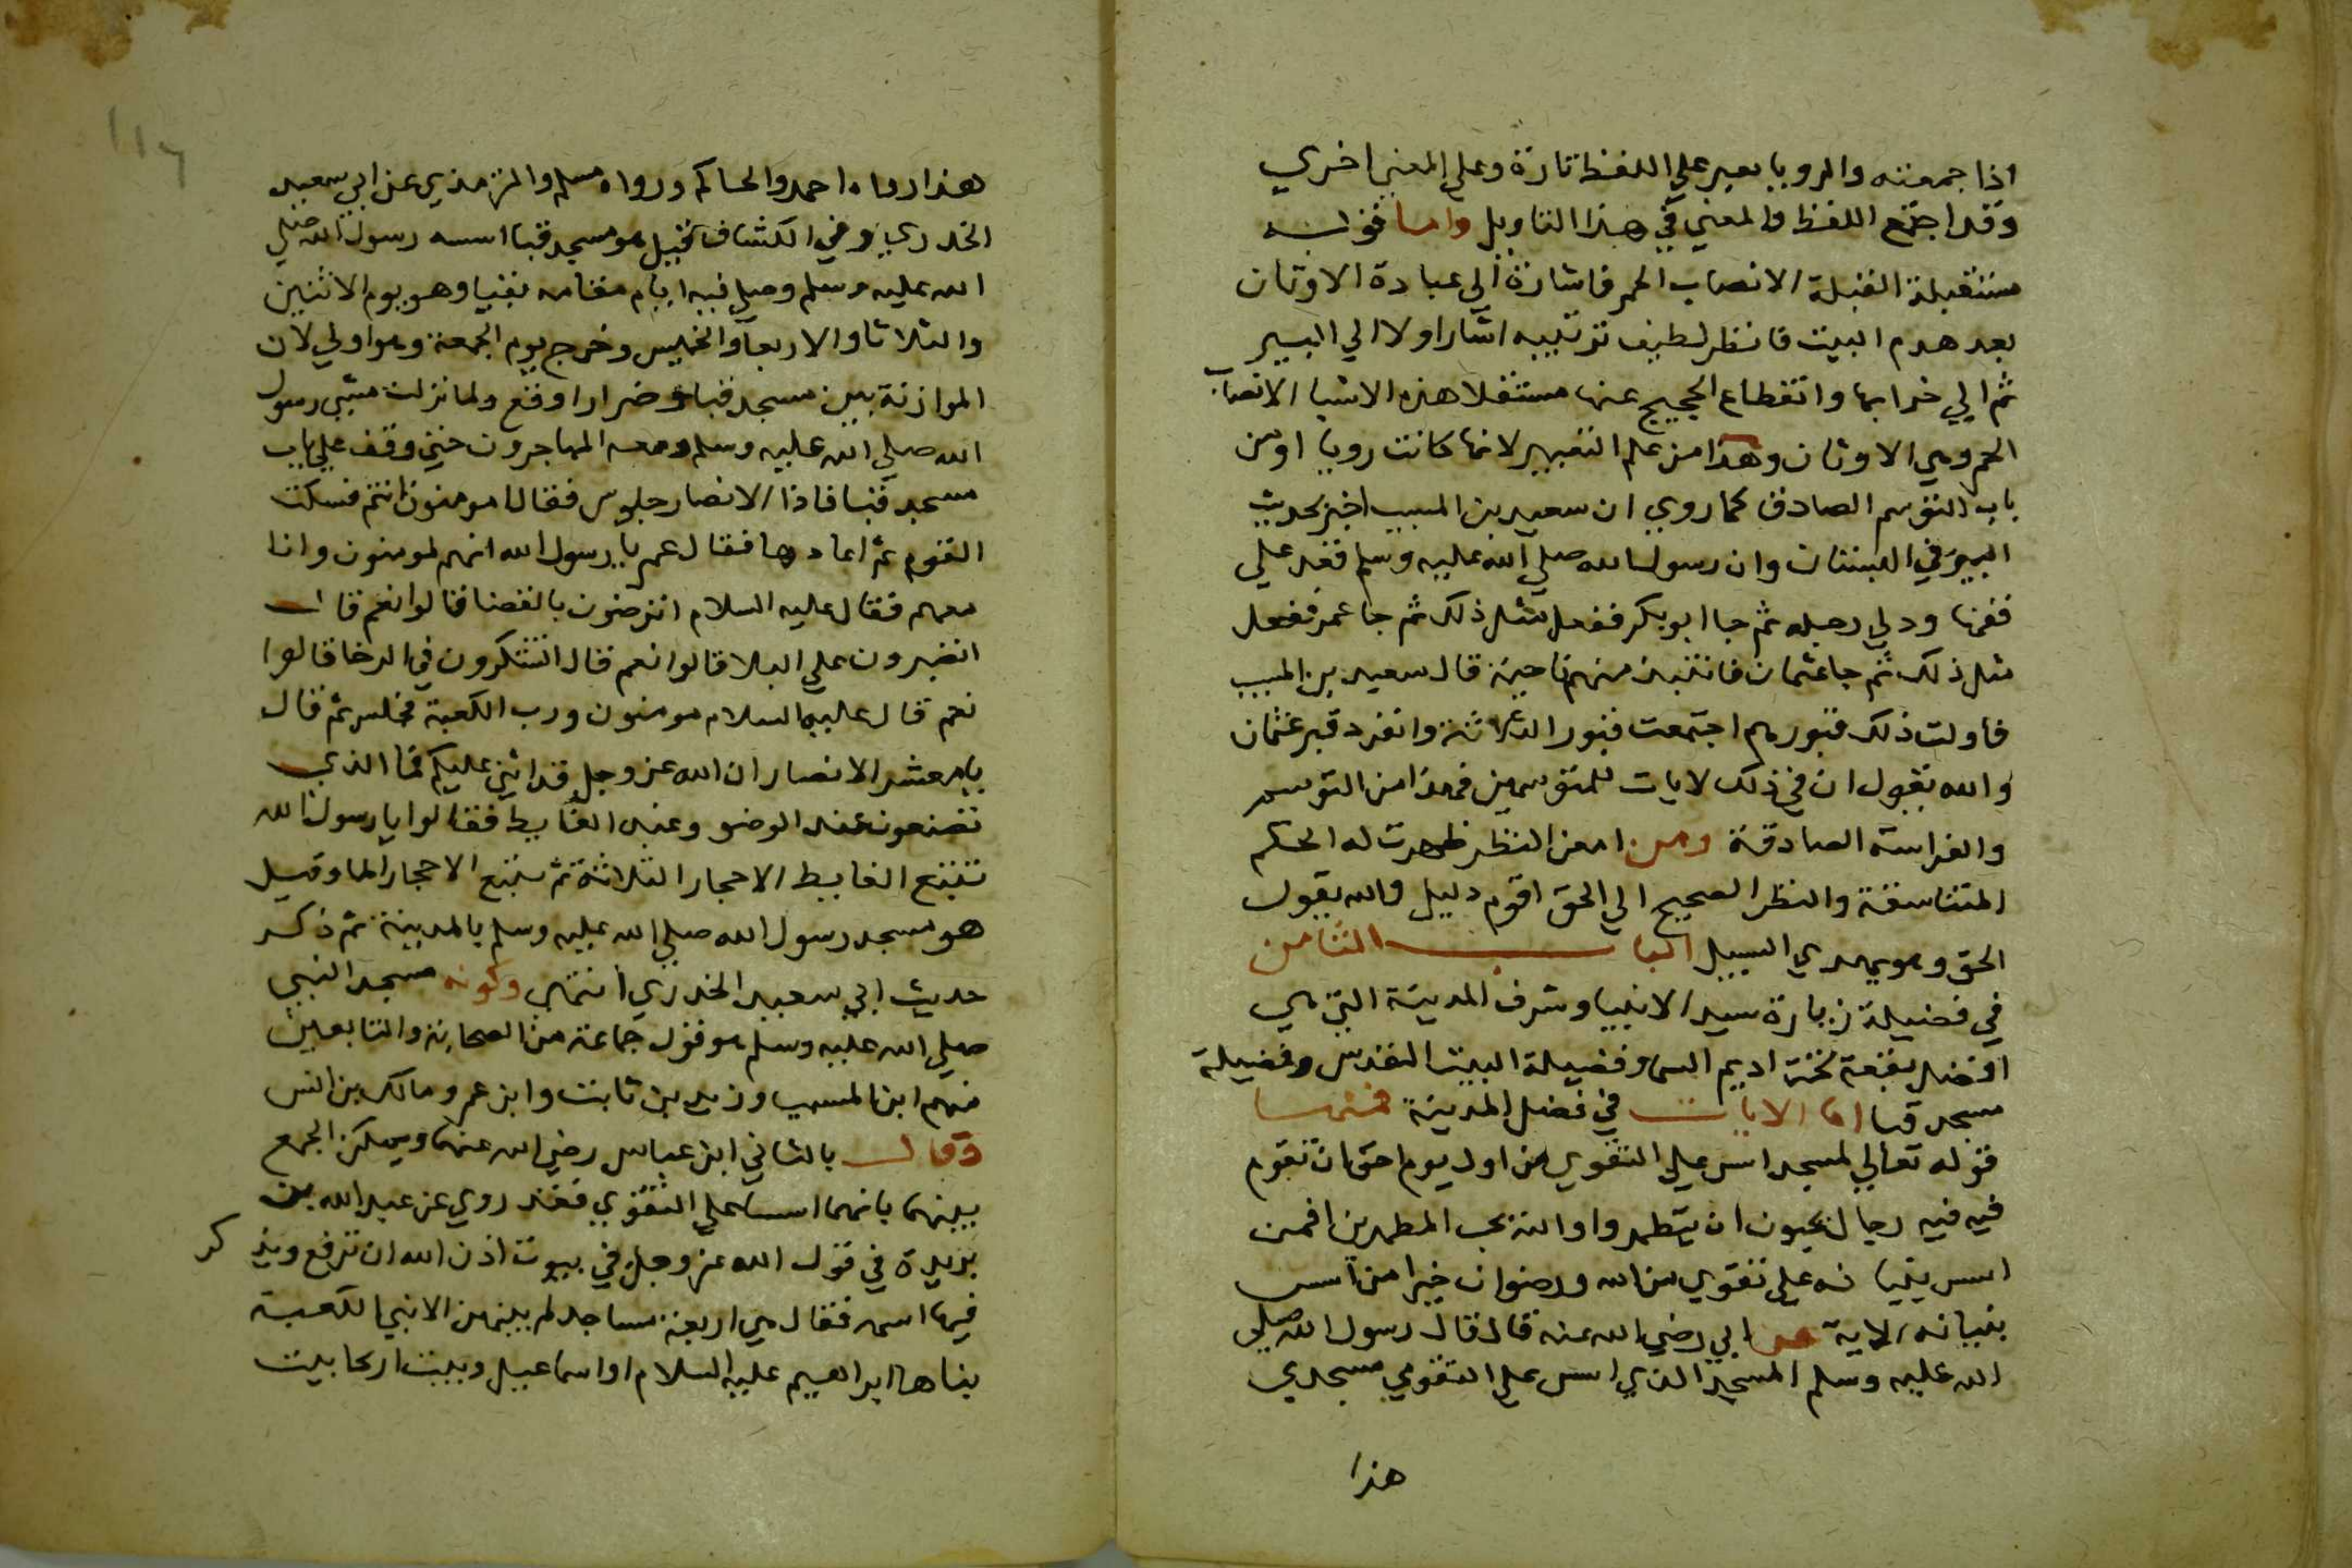 اذا جمعته والرويا يعبر علي اللفظ تارة وعلي المعني اخري
وقد اجتمع اللفظ والمعني في هذا التاويل واما قوله
مستقبلة القبلة الانصاب الحمر فاشارة الي عبادة الاوثان
بعد هدم البيت فانظر لطيف ترتيبه اشار اولا الي البير
ثم الي خرابها وانقطاع الحجيج عنها مستقلا هذه الاشيا الانصاب
الحمر وهي الاوثان وهذا من علم التعبير لانها كانت رويا او من
باب التوسم الصادق كما روي ان سعيد بن المسيب اخبر بحديث
البير في البستان وان رسول الله صلي الله عليه وسلم قعد علي
قفها ودلي رجله ثم جا ابو بكر ففعل مثل ذلك ثم جا عمر ففعل
مثل ذلك ثم جا عثمان فانتبذ منهم ناحية قال سعيد بن المسيب
فاولت ذلك قبورهم اجتمعت قبور الثلاثة وانفرد قبر عثمان
والله يقول ان في ذلك لايات للمتوسمين فهذا من التوسم
والفراسة الصادقة ومن امعن النظر ظهرت له الحكم
المتناسقة والنظر الصحيح الي الحق اقوم دليل والله يقول
الحق وهو يهدي السبيل الباب الثامن
في فضيلة زيارة سيد الانبيا وشرف المدينة التي هي
افضل بقعة تحت اديم السما وفضيلة البيت المقدس وفضيلة
مسجد قبا اما الايات في فضل المدينة فمنها
قوله تعالي لمسجد اسس علي التقوي من اول يوم احق ان تقوم
فيه فيه رجال يحبون ان يتطهروا والله يحب المطهرين افمن
اسس بنيانه علي تقوي من الله ورضوان خيرا من اسس
بنيانه الاية عن ابي رضي الله عنه قال قال رسول الله صلي
الله عليه وسلم المسجد الذي اسس علي التقوي مسجدي
هذا
هذا رواه احمد والحاكم ورواه مسلم والترمذي عن ابي سعيد
الخدري وفي الكشاف قيل هو مسجد قبا اسسه رسول الله صلي
الله عليه وسلم وصلي فيه ايام مقامه بقبا وهو يوم الاثنين
والثلاثا والاربعا والخميس وخرج يوم الجمعة وهو اولي لان
الموازنة بين مسجد قباء وضرار اوقع ولما نزلت مشي رسول
الله صلي الله عليه وسلم ومعه المهاجرون حتي وقف علي باب
مسجد قبا فاذا الانصار جلوس فقال امومنون انتم فسكت
القوم ثم اعادها فقال عمر يا رسول الله انهم لمومنون وانا
معهم فقال عليه السلام اترضون بالقضا قالوا نعم قال
اتصبرون علي البلا قالوا نعم قال اتشكرون في الرخا قالوا
نعم قال عليه السلام مومنون ورب الكعبة فجلس ثم قال
يا معشر الانصار ان الله عز وجل قد اثني عليكم فما الذي
تصنعون عند الوضو وعند الغايط فقالوا يا رسول الله
نتبع الغايط الاحجار الثلاثة ثم نتبع الاحجار الما وقيل
هو مسجد رسول الله صلي الله عليه وسلم بالمدينة ثم ذكر
حديث ابي سعيد الخدري انتهي وكونه مسجد النبي
صلي الله عليه وسلم هو قول جماعة من الصحابة والتابعين
منهم ابن المسيب وزيد بن ثابت وابن عمر ومالك بن انس
وقال بالثاني ابن عباس رضي الله عنهما ويمكن الجمع
بينهما بانهما اسسا علي التقوي فقد روي عن عبد الله بن
بريدة في قول الله عز وجل في بيوت اذن الله ان ترفع ويذكر
فيها اسمه فقال هي اربعة مساجد لم يبنهن الا نبي الكعبة
بناها ابراهيم عليه السلام او اسماعيل وبيت اريحا بيت